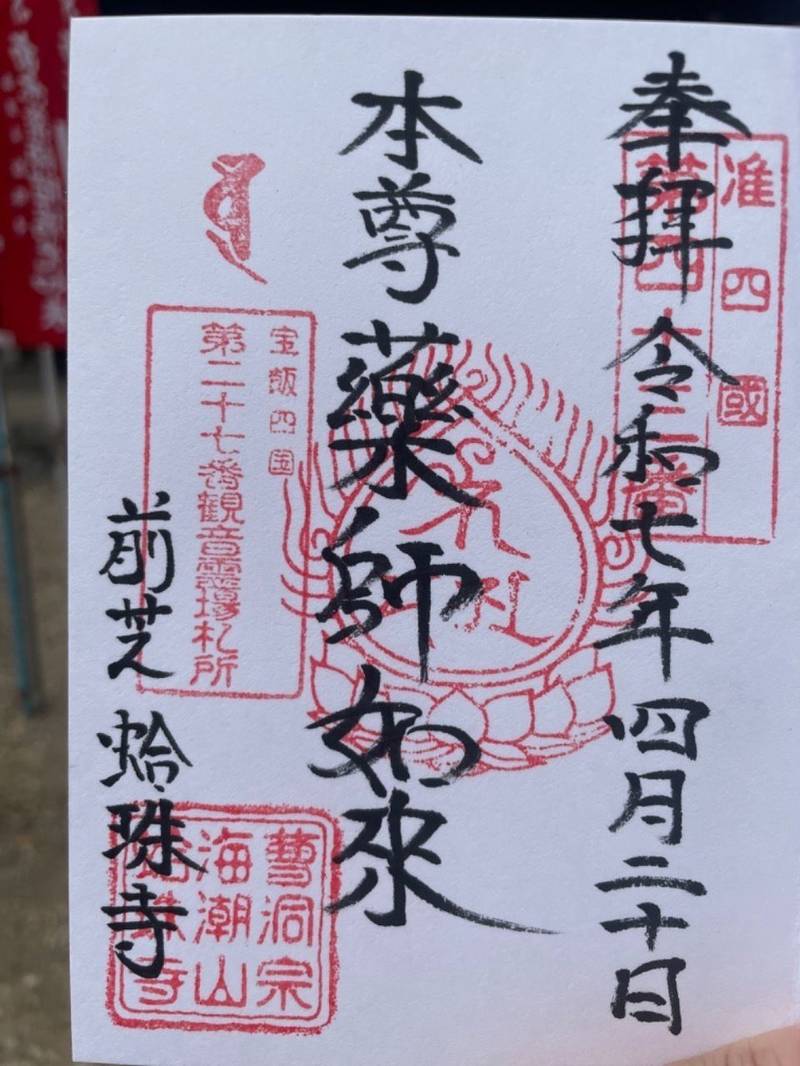 奉拝 令和七年四月二十日
准四國
本尊 藥師如來
宝飯四国
第二十七番観音霊場札所
前芝 蛤珠寺
曹洞宗
海潮山
蛤珠寺